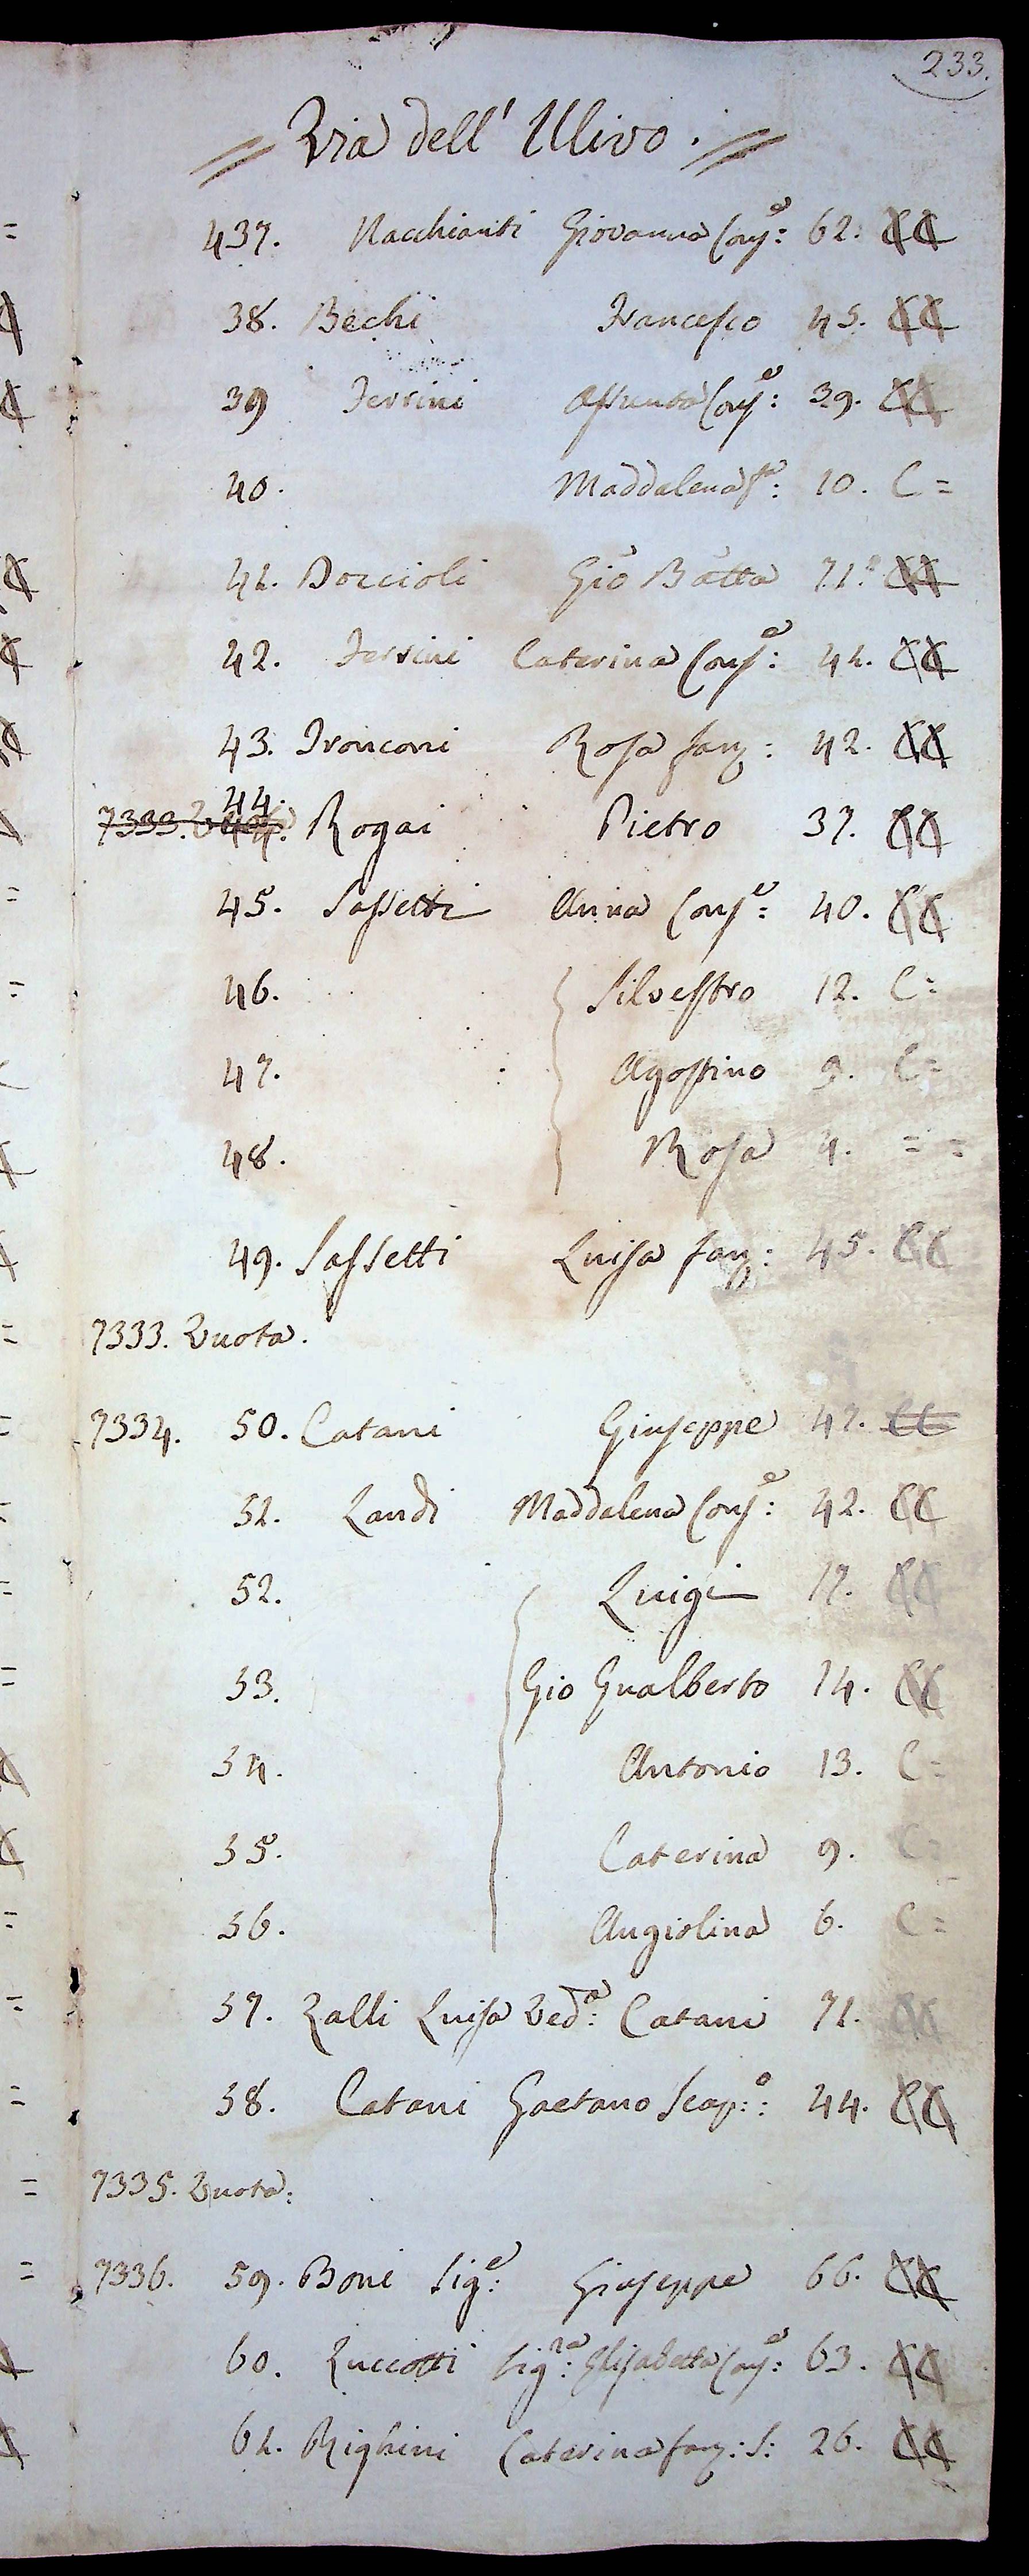 233.
= Via dell' Ulivo. =
437. Nacchianti Giovanna Conj:e 62. CC
38. Bechi Francesco 45. CC
39 Ferrini Assunta Conj:e 39. CC
40. Maddalena f:a 10. C =
41. Doccioli Gio Batta 71. CC
42. Ferrini Caterina Conj:e 41. CC
43. Tronconi Rosa fanz: 42. CC
44. Rogai Pietro 37. CC
45. Sassetti Anna Conj:e 40. CC
46. Silvestro 12. C =
47. Agostino 9. C =
48. Rosa 4. = =
49. Sassetti Luisa fanz: 45. CC
7333. Vuota.
7334. 50. Catani Giuseppe 47. CC
51. Landi Maddalena Conj:e 42. CC
52. Luigi 17. CC
53. Gio Gualberto 14. CC
54. Antonio 13. C =
55. Caterina 9. C =
56. Angiolina 6. C =
57. Zalli Luisa Ved:a Catani 71. CC
58. Catani Gaetano Scap:o: 44. CC
7335. Vuota:
7336. 59. Boni Sig:e Giuseppe 66. CC
60. Zuccotti Sig:ra Elisabetta Conj:e 63. CC
61. Righini Caterina fanz: S: 26. CC